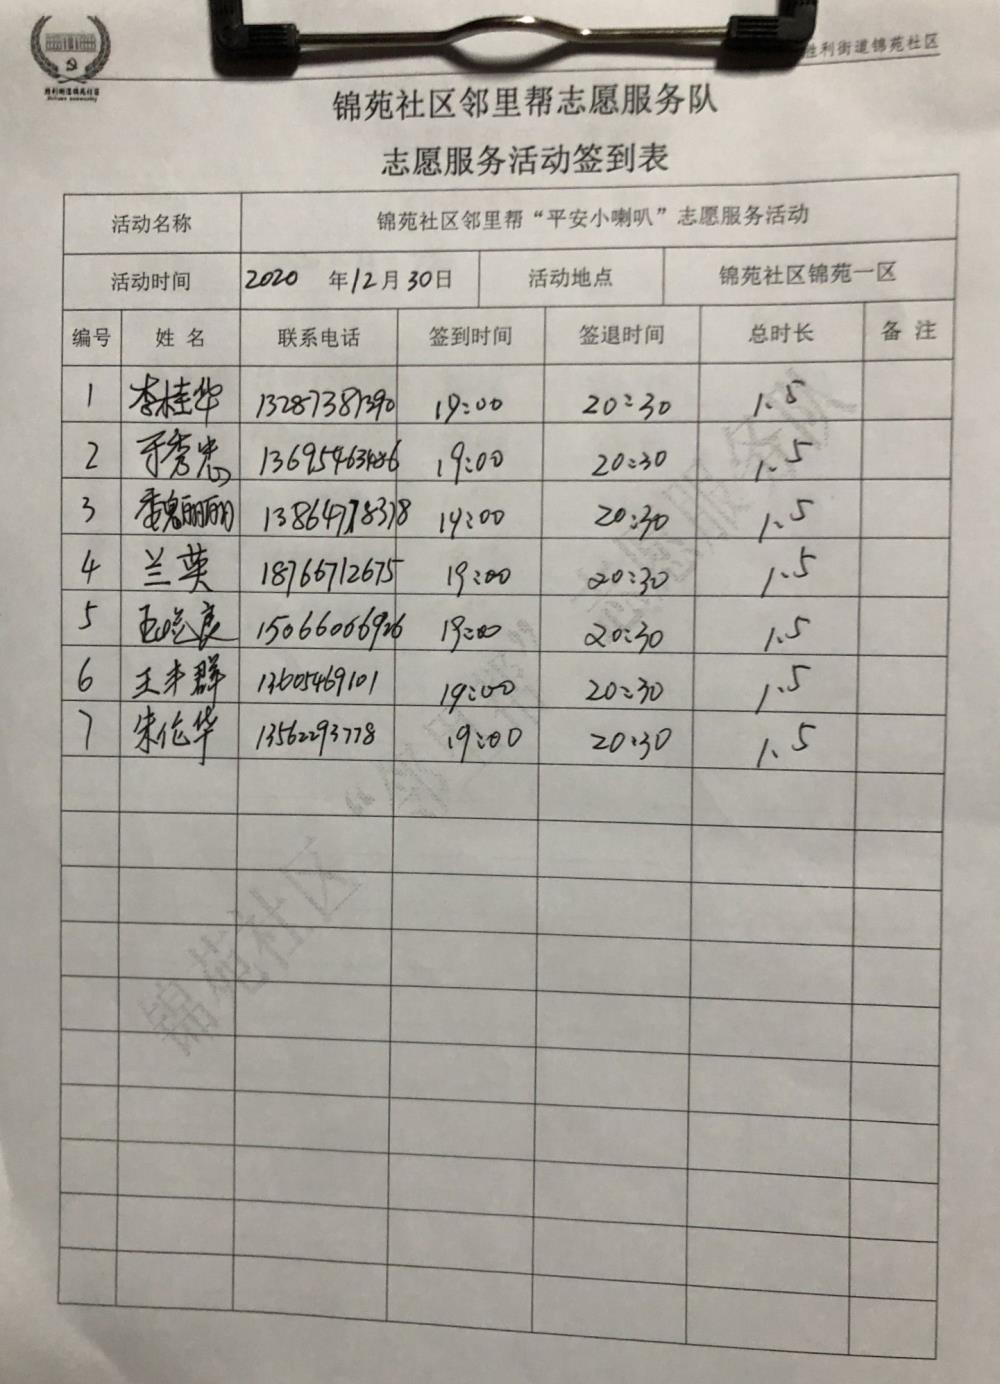 胜利街道锦苑社区
锦苑社区邻里帮志愿服务队
志愿服务活动签到表
活动名称 锦苑社区邻里帮“平安小喇叭”志愿服务活动
活动时间 2020 年12月30日 活动地点 锦苑社区锦苑一区
编号 姓 名 联系电话 签到时间 签退时间 总时长 备 注
1 李桂华 13287381390 19:00 20:30 1.5
2 于秀忠 13695463486 19:00 20:30 1.5
3 魏丽丽 19:00 20:30 1.5
4 兰英 18766712675 19:00 20:30 1.5
5 15066006926 19:00 20:30 1.5
6 王丰群 13605469101 19:00 20:30 1.5
7 朱伦华 13562293778 19:00 20:30 1.5
锦苑社区“邻里帮”志愿服务队